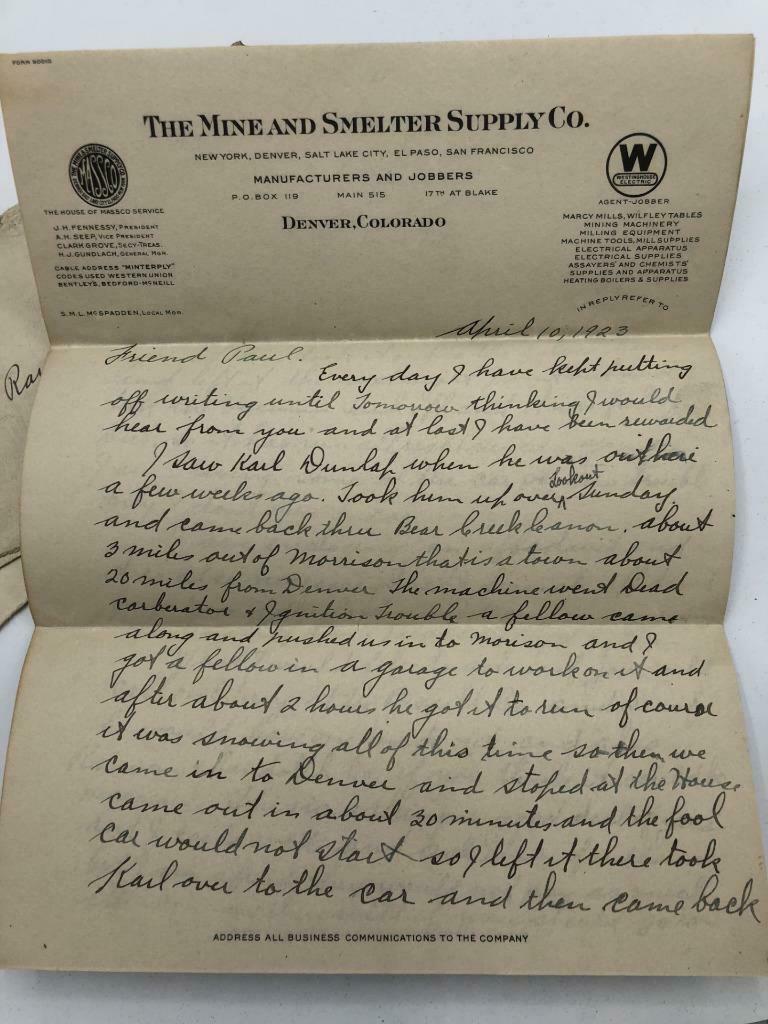 FORM 9001S
THE MINE AND SMELTER SUPPLY CO.
NEW YORK, DENVER, SALT LAKE CITY, EL PASO, SAN FRANCISCO
MANUFACTURERS AND JOBBERS
P.O. BOX 119 MAIN 515 17TH AT BLAKE
DENVER, COLORADO
MASSCO
THE HOUSE OF MASSCO SERVICE
J.H. FENNESSY, PRESIDENT
A.H. SEEP, VICE PRESIDENT
CLARK GROVE, SECY-TREAS.
H.J. GUNDLACH, GENERAL MGR.
CABLE ADDRESS "MINTERPLY"
CODES USED WESTERN UNION
BENTLEY'S, BEDFORD-McNEILL
S.M.L. McSPADDEN, LOCAL MGR.
W
WESTINGHOUSE
ELECTRIC
AGENT-JOBBER
MARCY MILLS, WILFLEY TABLES
MINING MACHINERY
MILLING EQUIPMENT
MACHINE TOOLS, MILL SUPPLIES
ELECTRICAL APPARATUS
ELECTRICAL SUPPLIES
ASSAYERS' AND CHEMISTS'
SUPPLIES AND APPARATUS
HEATING BOILERS & SUPPLIES
IN REPLY REFER TO
April 10, 1923
Friend Paul.
Every day I have kept putting
off writing until Tomorrow thinking I would
hear from you and at last I have been rewarded
I saw Karl Dunlap when he was out here
a few weeks ago. Took him up over Lookout Sunday
and came back thru Bear Creek Canon. about
3 miles out of Morrison that is a town about
20 miles from Denver The machine went Dead
carberator & Ignition Trouble a fellow came
along and pushed us in to Morison and I
got a fellow in a garage to work on it and
after about 2 hours he got it to run of course
it was snowing all of this time so then we
came in to Denver and stoped at the House
came out in about 30 minutes and the fool
car would not start so I left it there took
Karl over to the car and then came back
ADDRESS ALL BUSINESS COMMUNICATIONS TO THE COMPANY